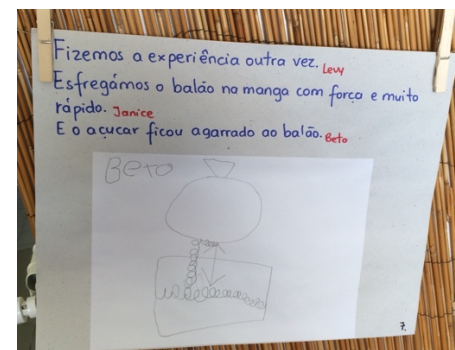 Fizemos a experiência outra vez. Levy
Esfregámos o balão na manga com força e muito
rápido. Janice
E o açucar ficou agarrado ao balão. Beto
BETO
7.